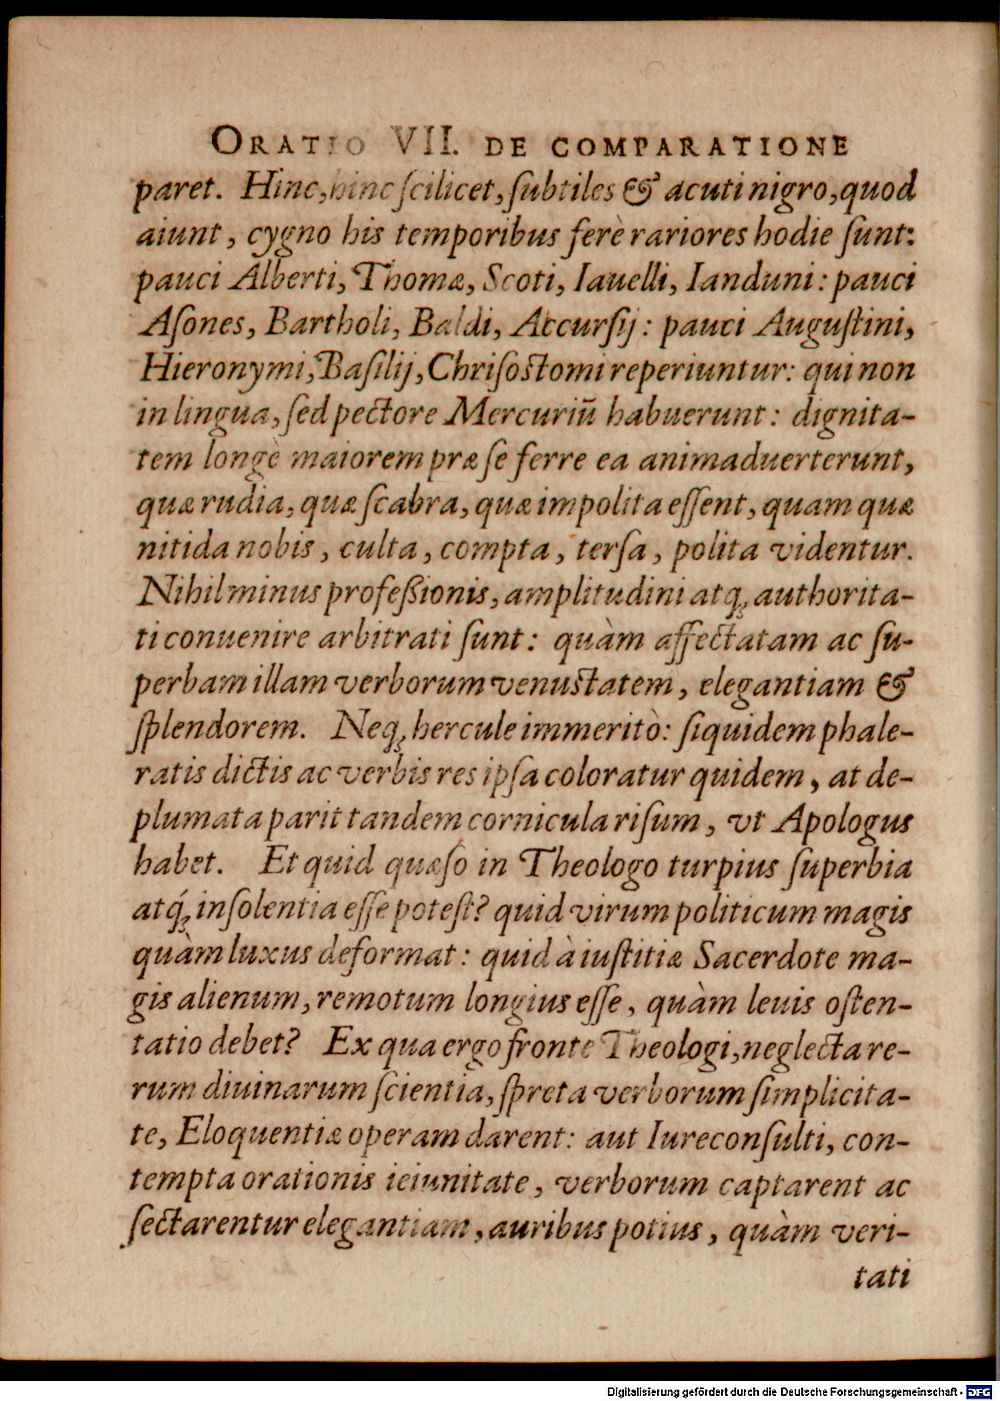 ORATIO VII. DE COMPARATIONE
paret. Hinc, hinc ſcilicet, ſubtiles & acuti nigro, quod
aiunt, cygno his temporibus ferè rariores hodie ſunt:
pauci Alberti, Thomæ, Scoti, Iauelli, Ianduni: pauci
Aſones, Bartholi, Baldi, Accurſij: pauci Auguſtini,
Hieronymi, Baſilij, Chriſoſtomi reperiuntur: qui non
in lingua, ſed pectore Mercuriū habuerunt: dignita-
tem longè maiorem præ ſe ferre ea animaduerterunt,
quæ rudia, quæ ſcabra, quæ impolita eſſent, quam quæ
nitida nobis, culta, compta, terſa, polita videntur.
Nihil minus profeßionis, amplitudini atq́; authorita-
ti conuenire arbitrati ſunt: quàm affectatam ac ſu-
perbam illam verborum venuſtatem, elegantiam &
ſplendorem. Neq; hercule immeritò: ſiquidem phale-
ratis dictis ac verbis res ipſa coloratur quidem, at de-
plumata parit tandem cornicula riſum, vt Apologus
habet. Et quid quæſo in Theologo turpius ſuperbia
atq́; inſolentia eſſe poteſt? quid virum politicum magis
quàm luxus deformat: quid à iuſtitiæ Sacerdote ma-
gis alienum, remotum longius eſſe, quàm leuis oſten-
tatio debet? Ex qua ergo fronte Theologi, neglecta re-
rum diuinarum ſcientia, ſpreta verborum ſimplicita-
te, Eloquentiæ operam darent: aut Iureconſulti, con-
tempta orationis ieiunitate, verborum captarent ac
ſectarentur elegantiam, auribus potius, quàm veri-
tati
Digitalisierung gefördert durch die Deutsche Forschungsgemeinschaft - DFG